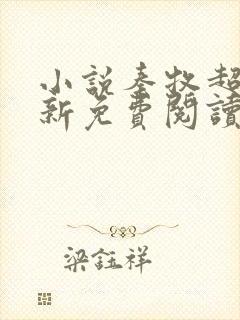 小說秦牧超
新免費閱讀
梁鈺祥